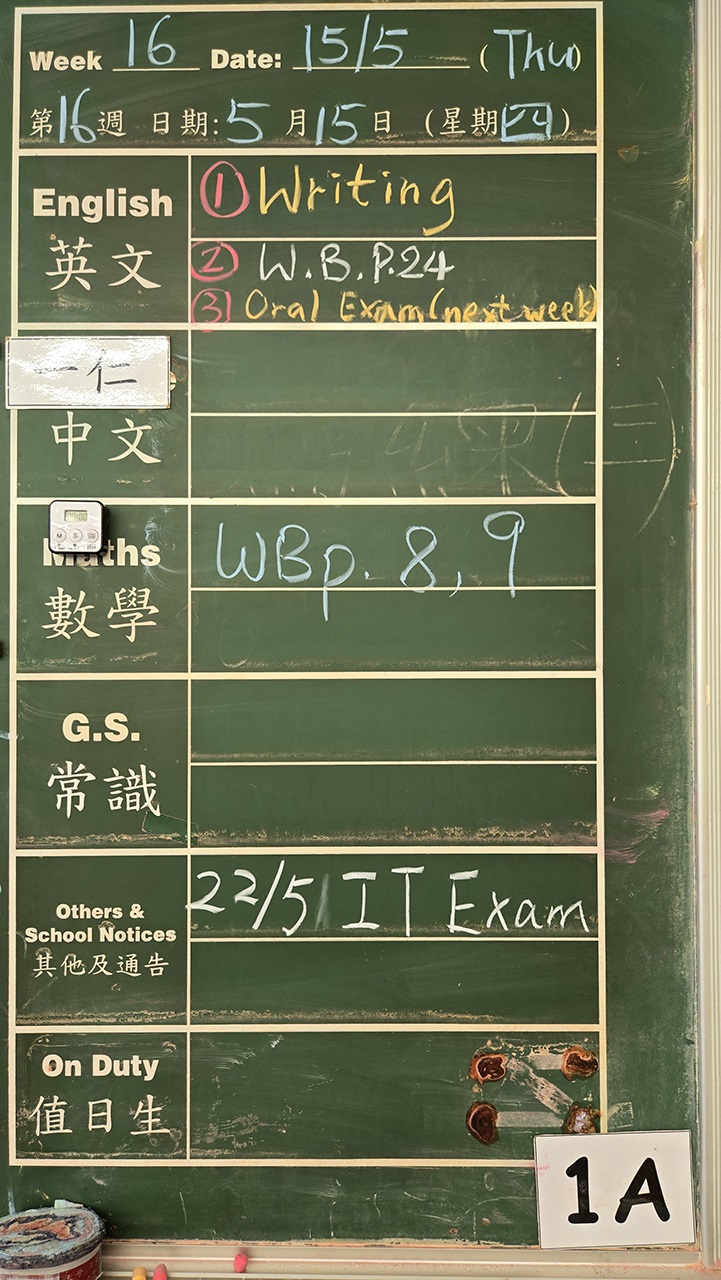 Week 16 Date: 15/5 (Thu)
第16週 日期:5月15日 (星期四)
English
英文
① Writing
② W.B.P.24
③ Oral Exam (next week)
一仁
中文
Maths
數學
WBp. 8, 9
G.S.
常識
Others &
School Notices
其他及通告
22/5 IT Exam
On Duty
值日生
1A